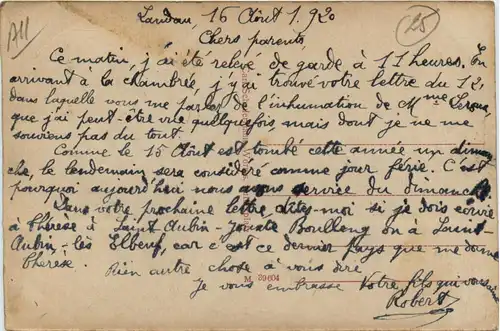 All
25
Landau, 16 Août 1.920
Chers parents,
Ce matin, j'ai été relevé de garde à 11 heures. En
arrivant à la chambrée, j'y ai trouvé votre lettre du 12,
dans laquelle vous me parlez de l'inhumation de Mme
que j'ai peut-être vue quelquefois, mais dont je ne me
souviens pas du tout.
Comme le 15 Août est tombé cette année un diman-
che, le lendemain sera considéré comme jour férié. C'est
pourquoi aujourd'hui nous avons service du dimanche.
Dans votre prochaine lettre, dites-moi si je dois écrire
à Thérèse à Saint Aubin-Jouxte Boulleng ou à Saint-
Aubin-lès Elbeuf, car c'est ce dernier pays que me donne
Thérèse.
Rien autre chose à vous dire
Je vous embrasse Votre fils qui vous aime
Robert
M. 39604